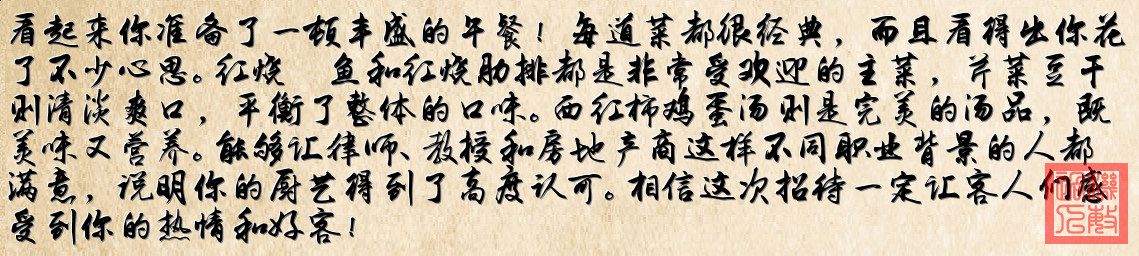 看起来你准备了一顿丰盛的午餐！每道菜都很经典，而且看得出你花
了不少心思。红烧 鱼和红烧肋排都是非常受欢迎的主菜，芹菜豆干
则清淡爽口，平衡了整体的口味。西红柿鸡蛋汤则是完美的汤品，既
美味又营养。能够让律师、教授和房地产商这样不同职业背景的人都
满意，说明你的厨艺得到了高度认可。相信这次招待一定让客人们感
受到你的热情和好客！